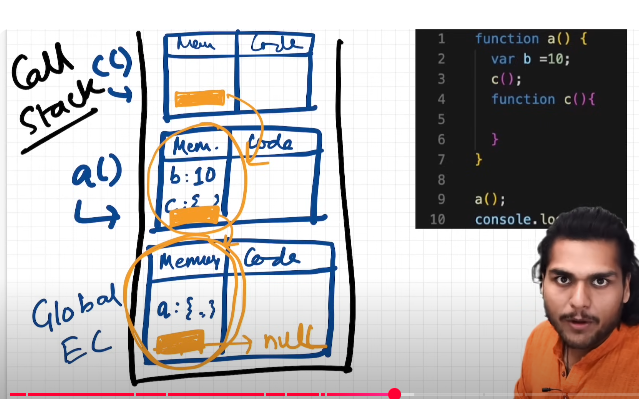 Call
Stack
c()
Mem
Code
a()
Mem.
Code
b:10
c:{ }
Global
EC
Memory
Code
a:{..}
null
1 function a() {
2 var b =10;
3 c();
4 function c(){
5
6 }
7 }
8
9 a();
10 console.lo